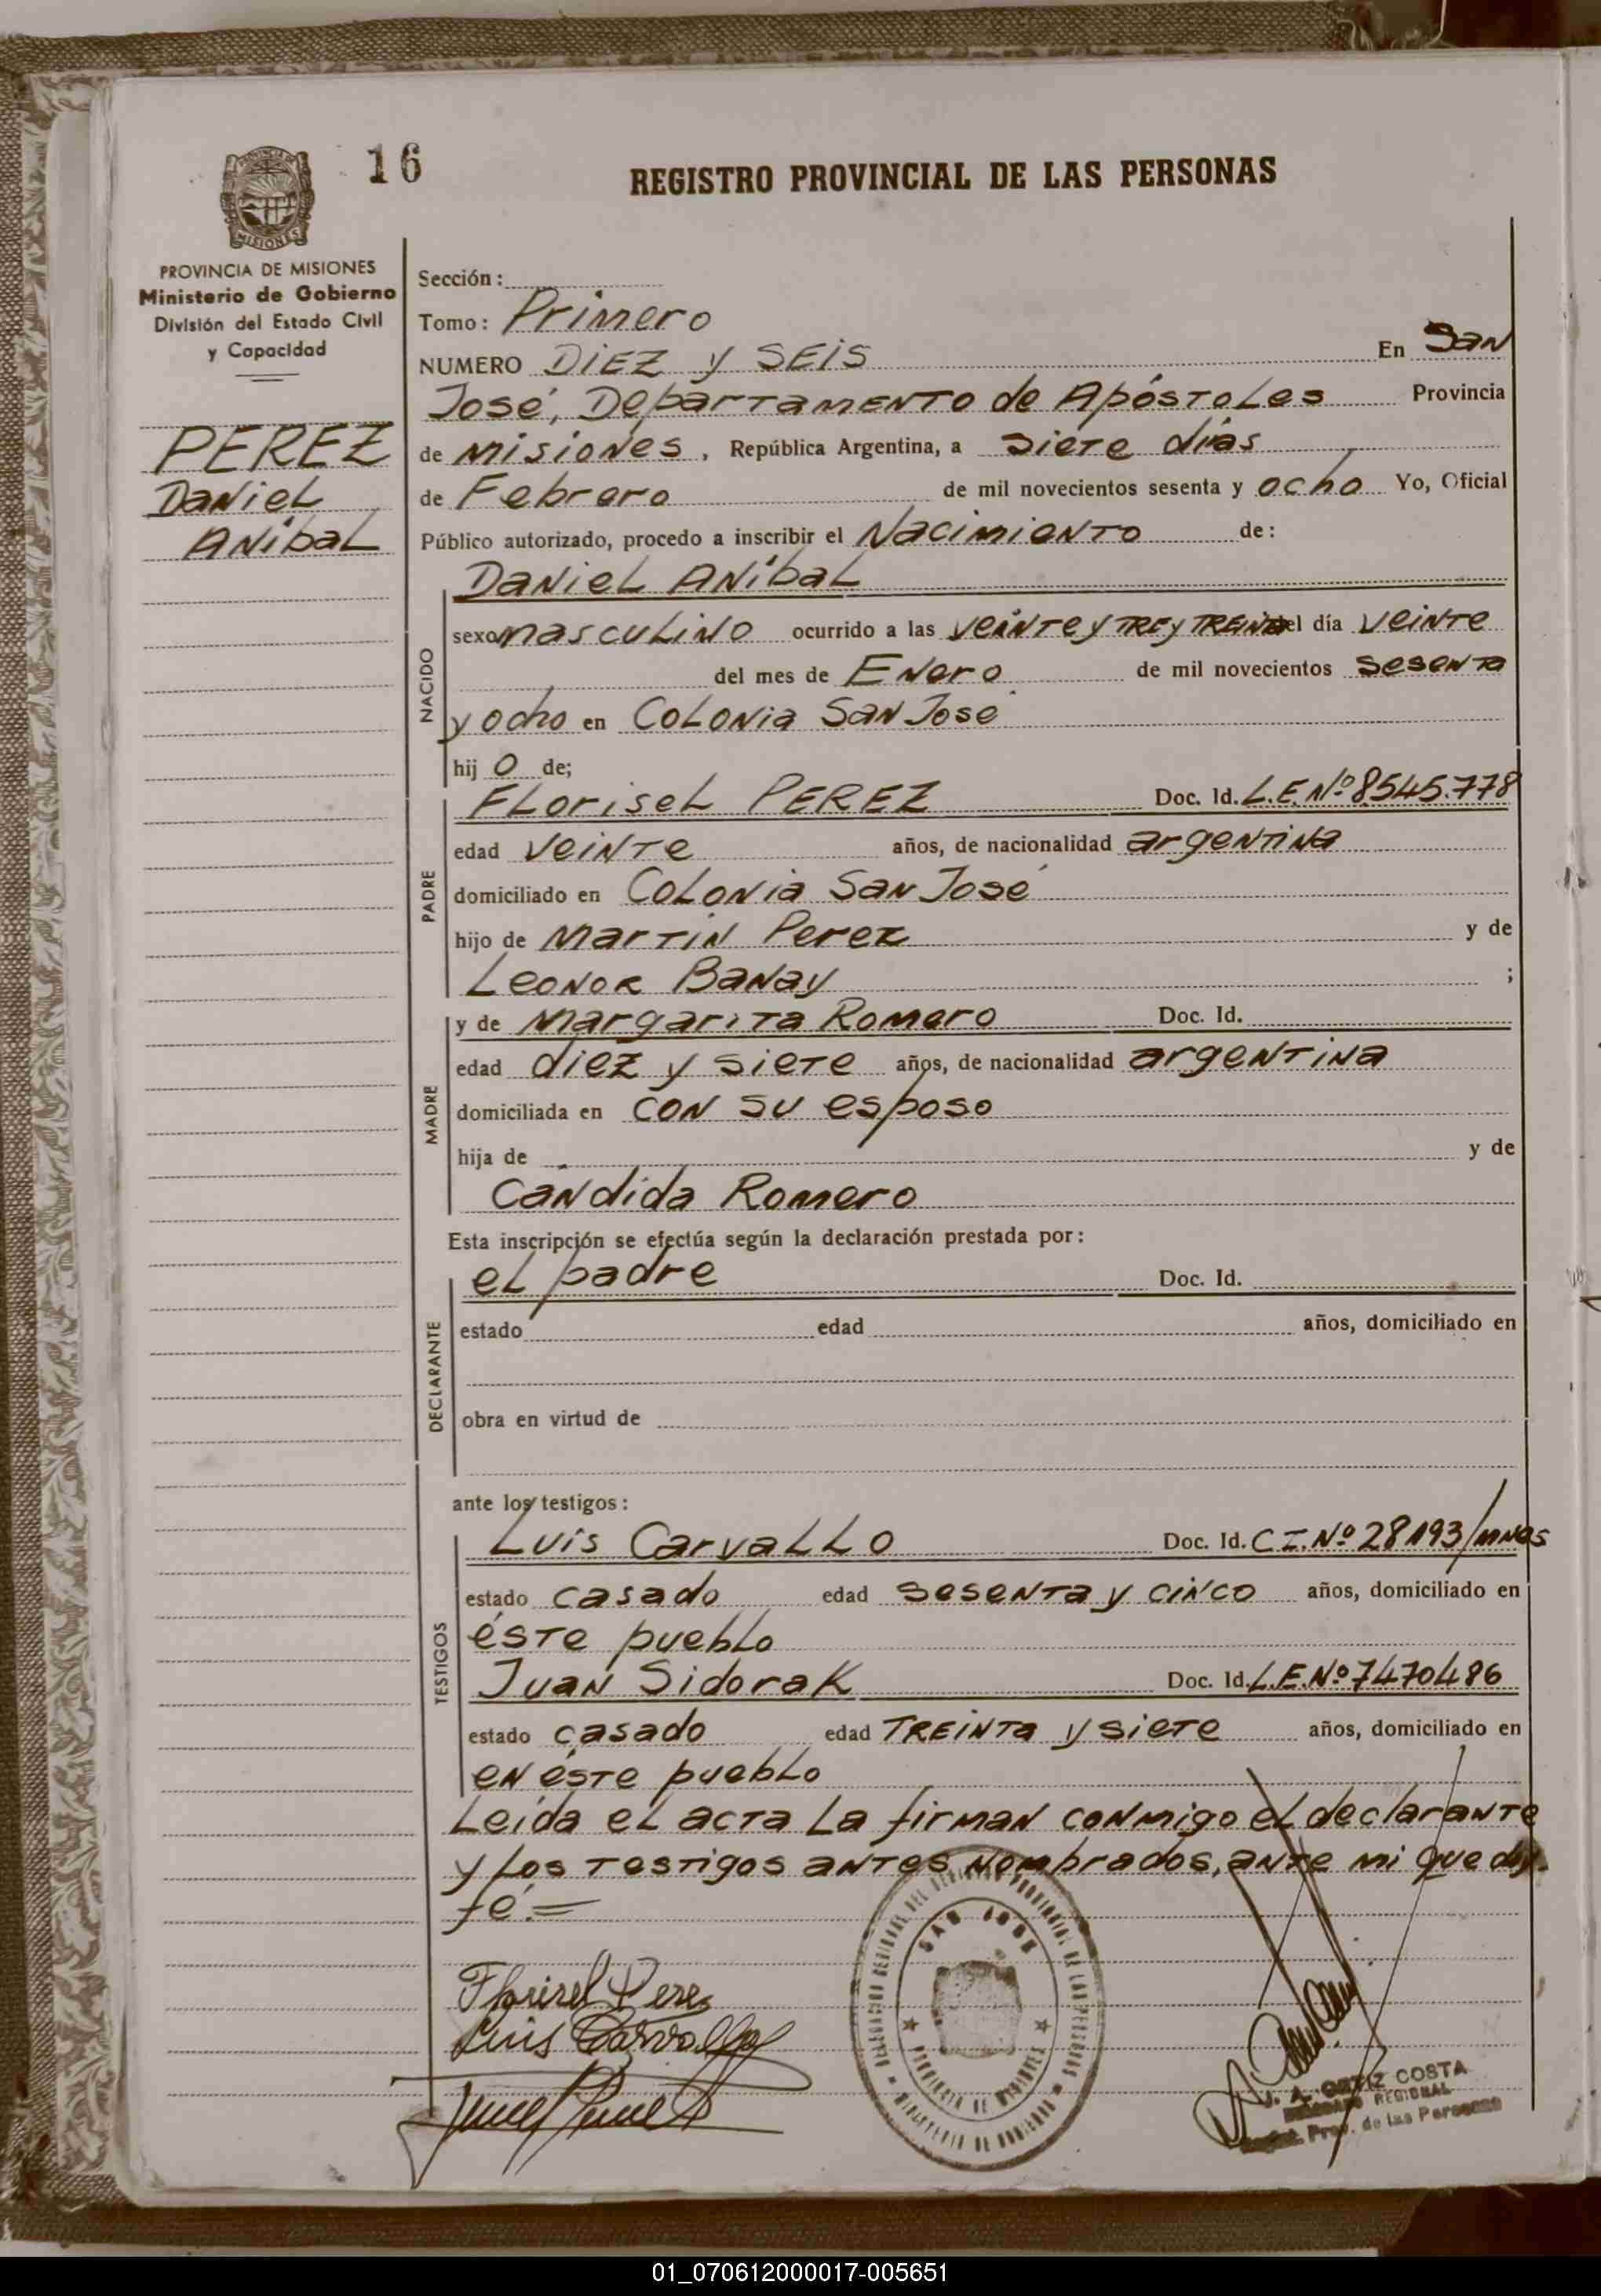 16
REGISTRO PROVINCIAL DE LAS PERSONAS
MISIONES
PROVINCIA DE MISIONES
Ministerio de Gobierno
División del Estado Civil
y Capacidad
PEREZ
Daniel
Anibal
Sección:
Tomo: Primero
NUMERO DIEZ y SEIS En San
José, Departamento de Apóstoles Provincia
de Misiones, República Argentina, a siete días
de Febrero de mil novecientos sesenta y ocho Yo, Oficial
Público autorizado, procedo a inscribir el Nacimiento de:
Daniel Aníbal
NACIDO
sexo masculino ocurrido a las veinte y tre y trein el día veinte
del mes de Enero de mil novecientos sesenta
y ocho en Colonia San José
hij o de;
PADRE
Florisel PEREZ Doc. Id. L.E. Nº 8545.778
edad veinte años, de nacionalidad argentina
domiciliado en Colonia San José
hijo de Martin Perez y de
Leonor Banay ;
MADRE
y de Margarita Romero Doc. Id.
edad diez y siete años, de nacionalidad argentina
domiciliada en con su esposo
hija de y de
Cándida Romero
Esta inscripción se efectúa según la declaración prestada por:
DECLARANTE
el padre Doc. Id.
estado edad años, domiciliado en
obra en virtud de
ante los testigos:
TESTIGOS
Luis Carvallo Doc. Id. C.I. Nº 28193/mnes
estado casado edad sesenta y cinco años, domiciliado en
éste pueblo
Juan Sidorak Doc. Id. L.E. Nº 7470486
estado casado edad treinta y siete años, domiciliado en
en éste pueblo
Leída el acta la firman conmigo el declarante
y los testigos antes nombrados, ante mi que doy
fé.=
Florisel Perez
Luis Carvallo
DELEGACION REGIONAL DEL REGISTRO PROVINCIAL DE LAS PERSONAS
SAN JOSE
PROVINCIA DE MISIONES
MINISTERIO DE GOBIERNO
J. A. ORTIZ COSTA
DELEGADO REGIONAL
Prov. de las Personas
01_070612000017-005651